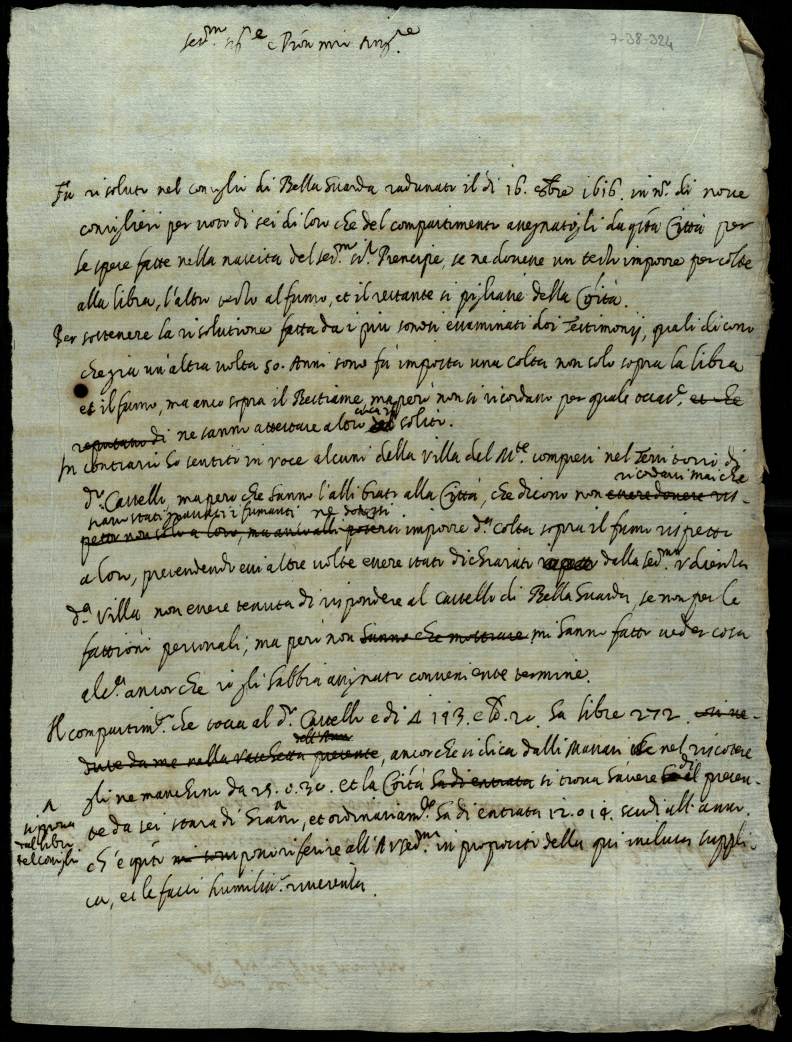 Ser.mo Sig.re e Pron mio Oss.re
7-38-324
Fu risoluto nel consiglio di Bella Guarda radunato il dì 16. 8bre 1616. in n.o di nove
consiglieri per voto di sei di loro che del compartimento assignatogli da q.sta Città per
le spese fatte nella nascita del ser.mo sig.r Prencipe, se ne dovesse un terzo imporre per colte
alla libra, l'altro terzo al fumo, et il restante si pigliasse della Co̅ità.
Per sostenere la risolutione fatta da i più sonosi essaminati doi Testimonij, quali dicono
che già un'altra volta 50. Anni sono fù imposta una colta non solo sopra la libra
et il fumo, ma anco sopra il Bestiame, ma però non si ricordano per quale occas.e, et che
reputano di ne sanno attestare altro soliti.
In contrario hò sentito in voce alcuni della villa del M.te compresi nel Territorio di
ricordarsi mai che
d.o Castello, ma però che hanno l'allibrato alla Città, che dicono non essere dovere ris-
siano stati i fumanti ne doversi
petto non solo a loro, ma anco alli imporre d.a colta sopra il fumo rispetto
a loro, pretendendo essi altre volte essere stato dichiarato dalla ser.ma Udienza
d.a villa non essere tenuta di rispondere al Castello di Bella Guarda, se non per le
fattioni personali; ma però non hanno che mostrare mi hanno fatto veder cosa
alc.a ancorche io gli habbia assignato conveniente termine.
Il compartim.to che tocca al d.o Castello è di 193. e 20. Ha libre 272.
dell'Anno
dute da me nella Vacchetta presente, ancorche si dica dalli Massari che nel riscotere
gli ne manchino da 25. o 30. et la Co̅ità ha di entrata si trova havere del presen-
te da sei stara di Grano, et ordinariam.te ha di entrata 12. o 14. scudi all'anno.
si prova
dal libro
del consiglio
ch'è q.to posso riferire all'A V ser.ma in proposito della qui inclusa suppli-
ca, et le faccio humiliss.a riverenza.